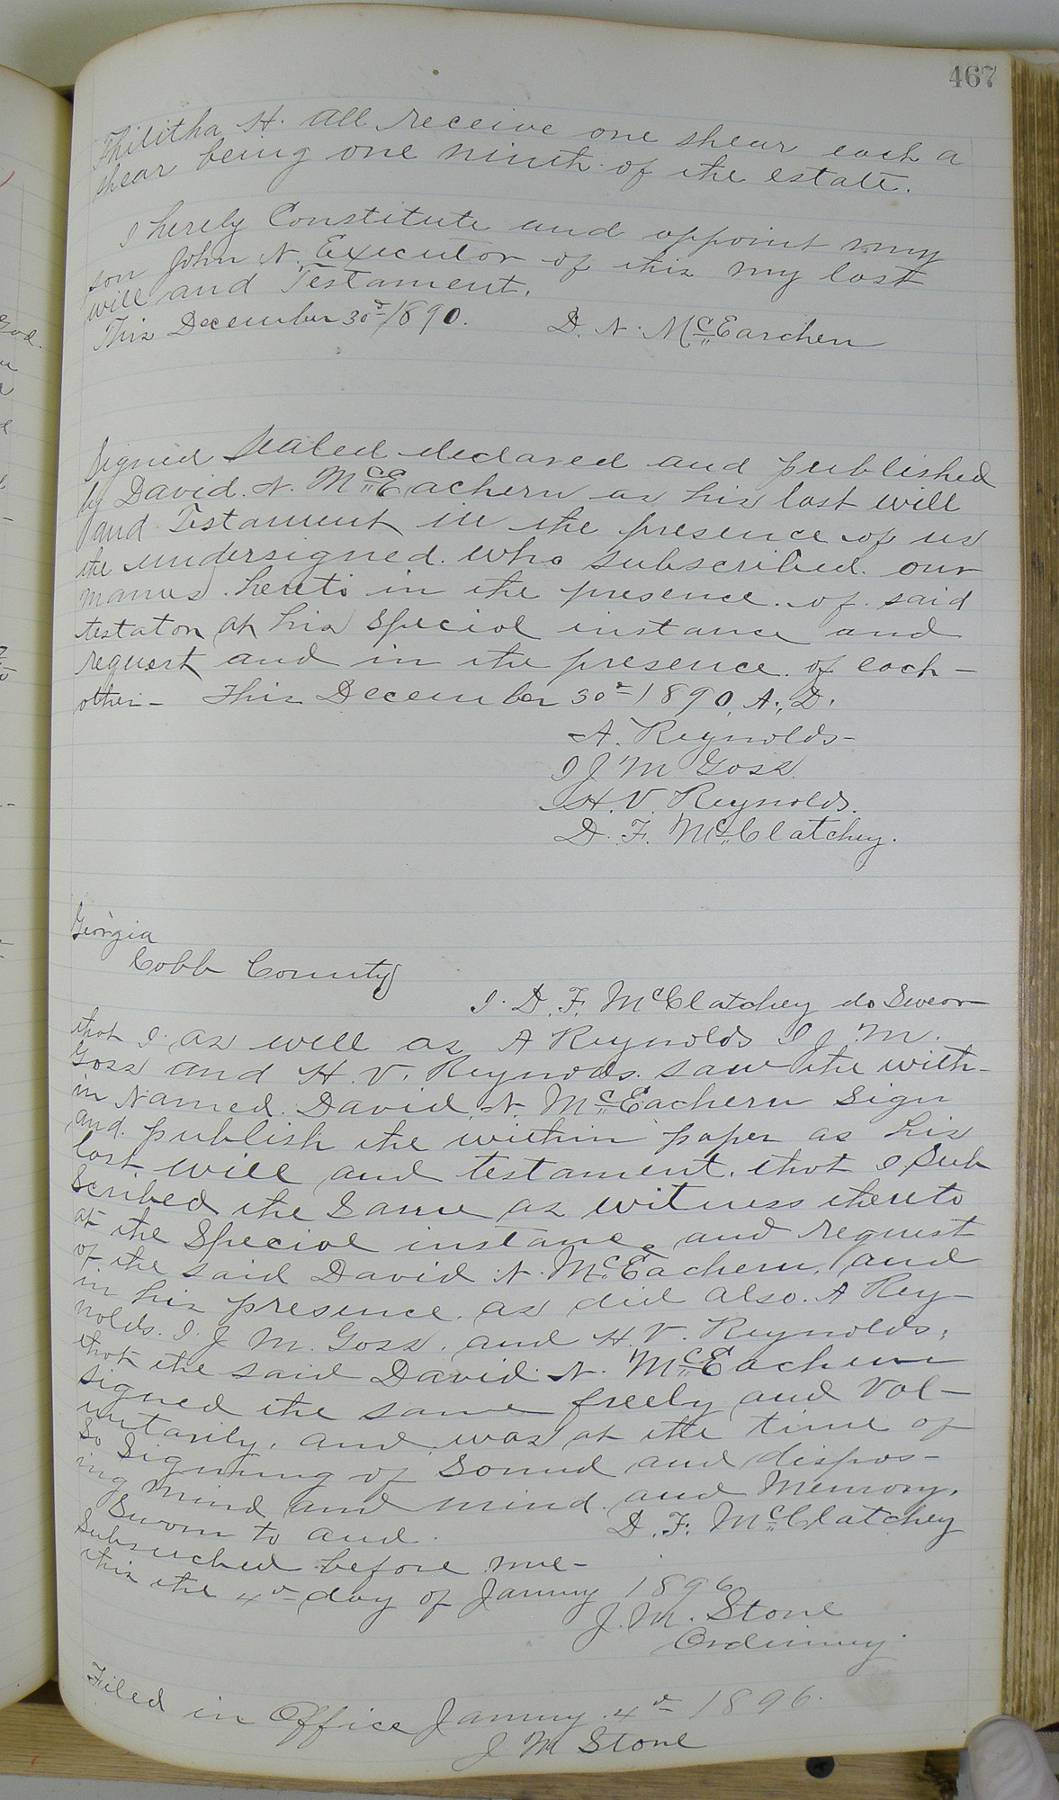 467
Thilitha H. all receive one shear each a
shear being one ninth of the estate.
I herely Constitute and appoint my
son John N. Executor of this my last
will and Testament.
This December 30th 1890.    D. N. McEarchen
Signed Sealed declared and published
by David. N. McEachern as his last will
and Testament in the presence of us
the undersigned. who subscribed. our
names. hereto in the presence. of. said
testator at his special instance and
request and in the presence of each-
other- This December 30th 1890. A. D.
A. Reynolds-
I J M Goss.
H. V. Reynolds.
D. F. McClatchey.
Georgia
Cobb County
I. D. F. McClatchey do Swear-
that I as well as A Reynolds I J M.
Goss and H. V. Reynolds. saw the with-
in Named. David. N. McEachern Sign
and. publish the within paper as his
last will and testament. that I Sub
scribed the Same as witness thereto
at the Special instance and request
of the said David N. McEachern. and
in his presence. as did also. A Rey-
nolds. I. J M. Goss. and H. V. Reynolds,
that the said David. N. McEachern
signed the same freely and Vol-
untarily. and was at the time of
So Signing of Sound and dispos-
ing Mind and mind. and Memory.
Sworn to and.    D. F. McClatchey
Subscribed before me-
this the 4th day of January 1896
J. M. Stone
Ordinary.
Filed in Office January. 4th 1896.
J M Stone